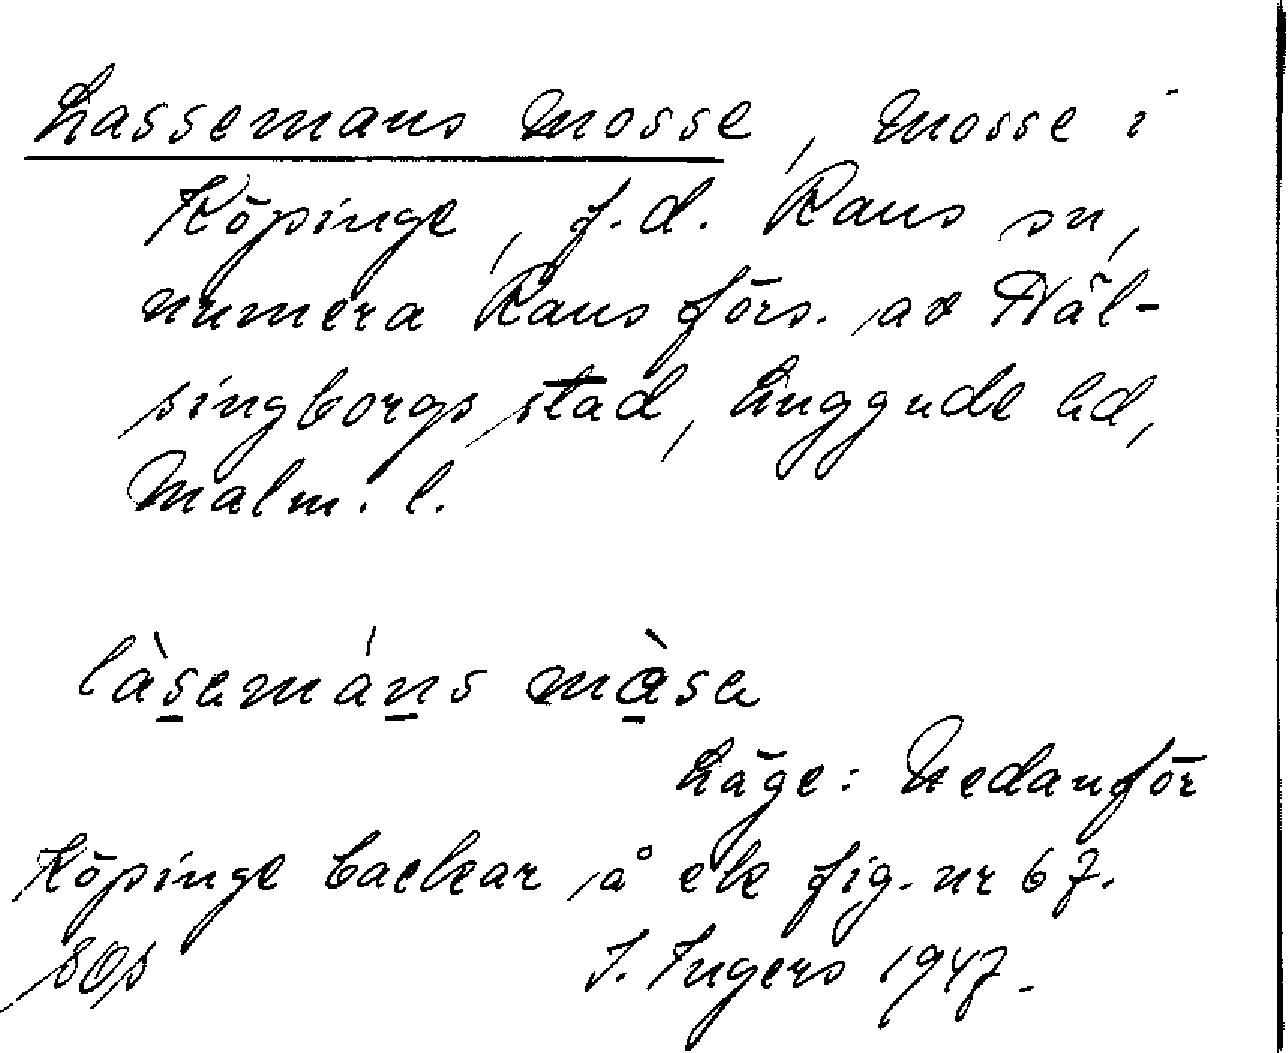 Lassemans mosse, mosse i
Köpinge, f.d. Raus sn,
numera Raus förs. av Häl-
singborgs stad, Luggude hd,
Malm. l.
làsemáns màse
Läge: Nedanför
Köpinge backar å ek fig. nr 67.
I. Ingers 1947.